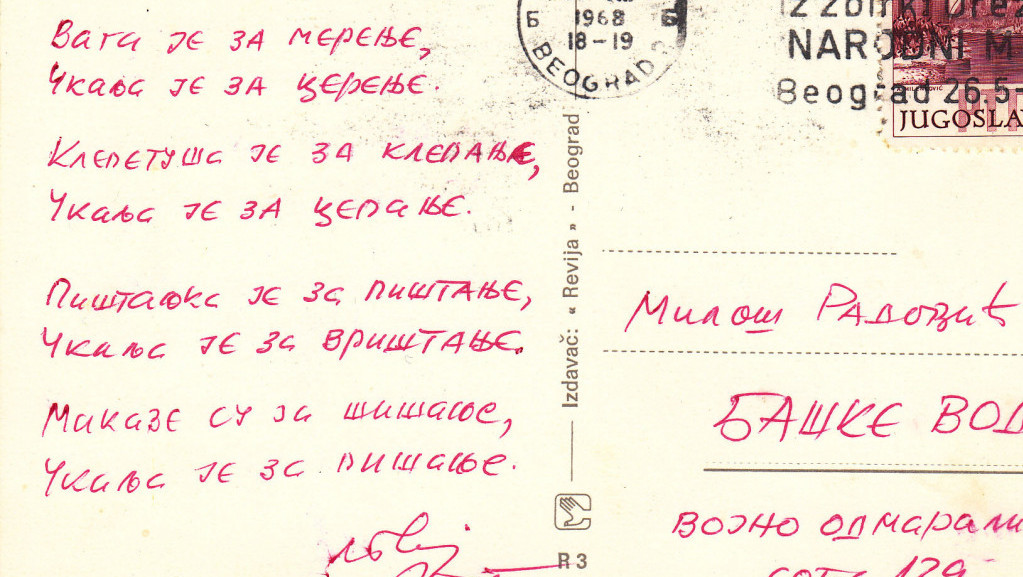 Вага је за мерење,
Чкаља је за церење.
Клепетуша је за клепање,
Чкаља је за цепање.
Пиштаљка је за пиштање,
Чкаља је за вриштање.
Маказе су за шишање,
Чкаља је за пишање.
1968
Б Б
18-19
BEOGRAD
NARODNI M
Beograd 26.5-
JUGOSLA
Izdavač: « Revija » - Beograd
R 3
Милош Радовић
БАШКЕ ВОД
ВОЈНО ОДМАРАЛИ
129